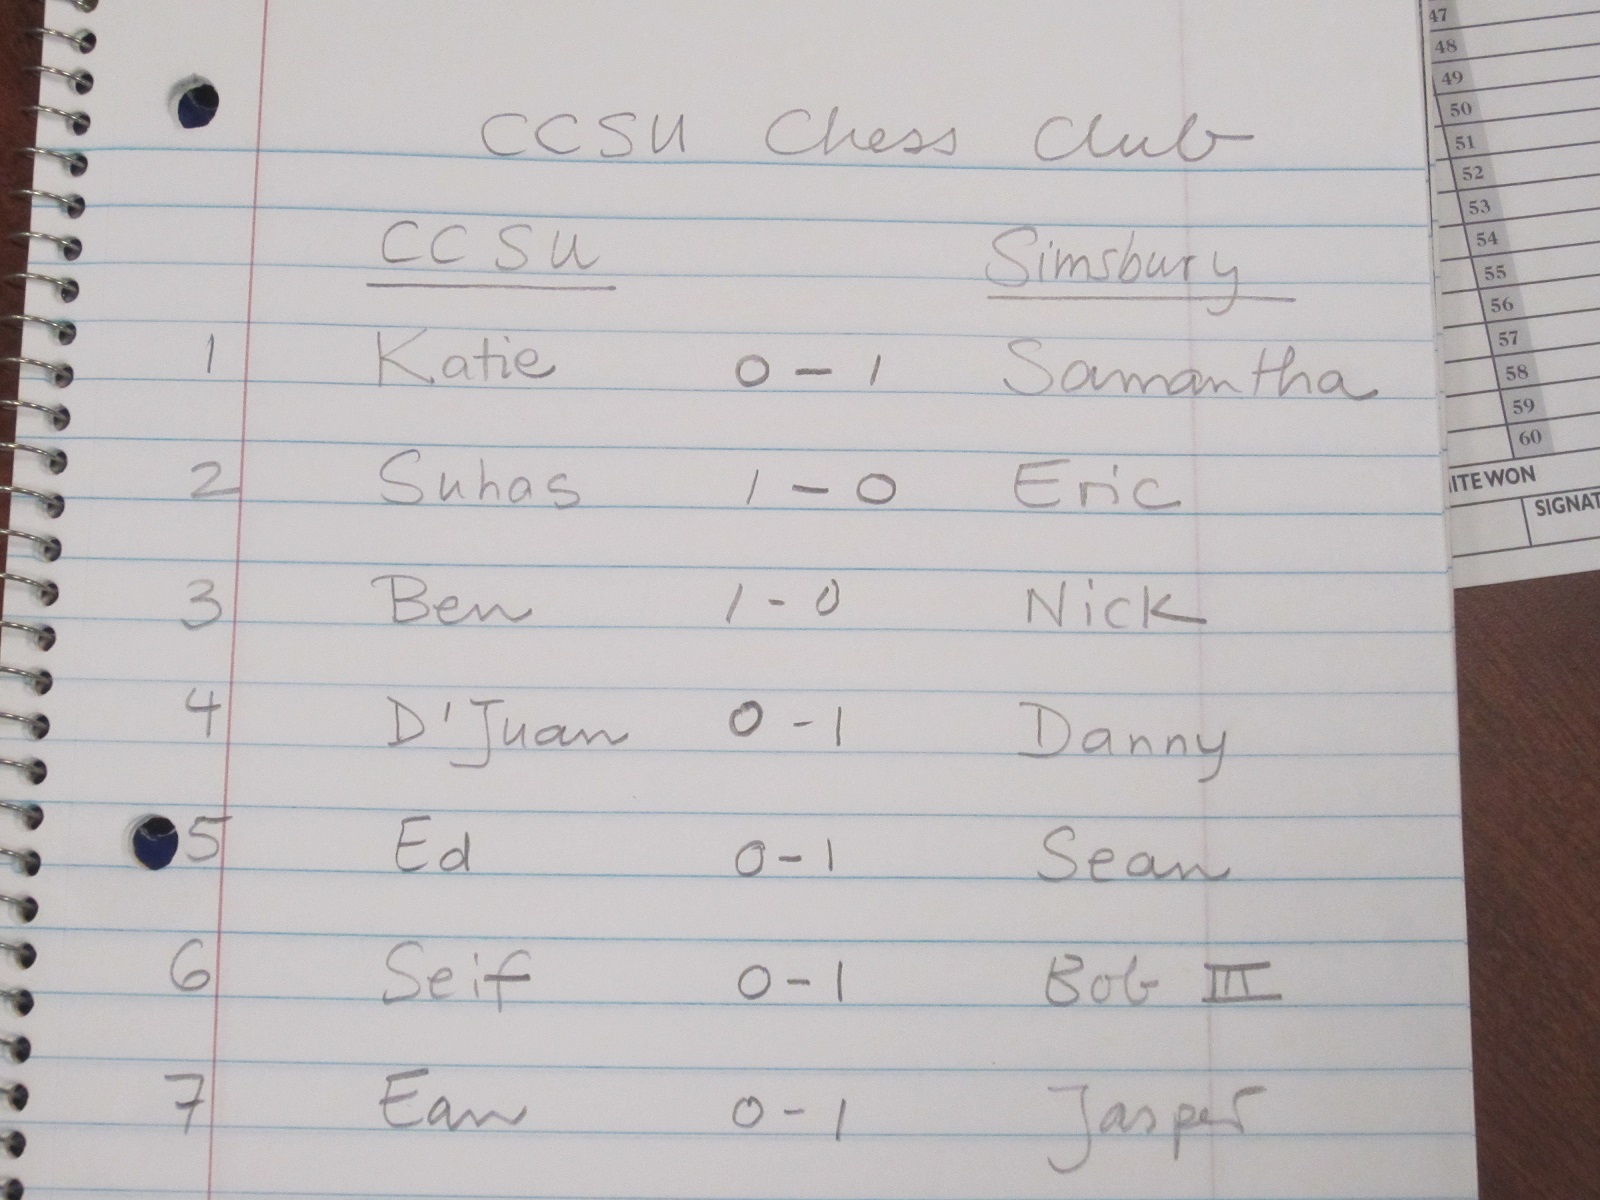 CCSU Chess Club
CCSU Simsbury
1 Katie 0 - 1 Samantha
2 Suhas 1 - 0 Eric
3 Ben 1 - 0 Nick
4 D'Juan 0 - 1 Danny
5 Ed 0 - 1 Sean
6 Seif 0 - 1 Bob III
7 Ean 0 - 1 Jasper
47
48
49
50
51
52
53
54
55
56
57
58
59
60
ITE WON
SIGNAT